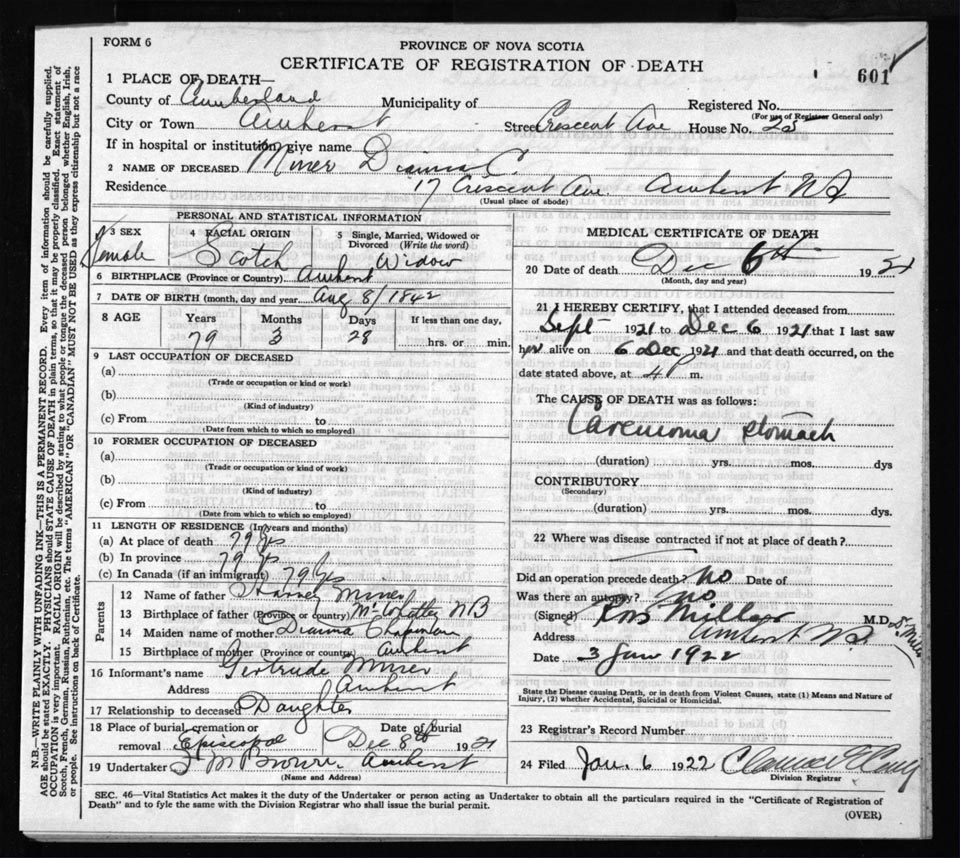 FORM 6
PROVINCE OF NOVA SCOTIA
CERTIFICATE OF REGISTRATION OF DEATH
601
1 PLACE OF DEATH—
County of Cumberland Municipality of Registered No.
(For use of Registrar General only)
City or Town Amherst Street Crescent Ave House No. 25
If in hospital or institution, give name
2 NAME OF DECEASED Miner C.
Residence 17 Crescent Ave. Amherst NS
(Usual place of abode)
PERSONAL AND STATISTICAL INFORMATION
3 SEX 4 RACIAL ORIGIN 5 Single, Married, Widowed or Divorced (Write the word)
Female Scotch Widow
6 BIRTHPLACE (Province or Country) Amherst
7 DATE OF BIRTH (month, day and year) Aug 8/1842
8 AGE Years Months Days If less than one day,
79 3 28 hrs. or min.
9 LAST OCCUPATION OF DECEASED
(a)
(Trade or occupation or kind or work)
(b)
(Kind of industry)
(c) From to
(Date from which to which so employed)
10 FORMER OCCUPATION OF DECEASED
(a)
(Trade or occupation or kind or work)
(b)
(Kind of industry)
(c) From to
(Date from which to which so employed)
11 LENGTH OF RESIDENCE (In years and months)
(a) At place of death 79 yrs
(b) In province 79 yrs
(c) In Canada (if an immigrant) 79 yrs
Parents
12 Name of father Miner
13 Birthplace of father (Province or country) NB
14 Maiden name of mother
15 Birthplace of mother (Province or country) Amherst
16 Informant's name Gertrude Miner
Address Amherst
17 Relationship to deceased Daughter
18 Place of burial, cremation or removal Episcopal Date of burial Dec 8th 1921
19 Undertaker Brown Amherst
(Name and Address)
MEDICAL CERTIFICATE OF DEATH
20 Date of death Dec 6th 1921
(Month, day and year)
21 I HEREBY CERTIFY, that I attended deceased from
Sept 1921 to Dec 6 1921 that I last saw
her alive on 6 Dec 1921 and that death occurred, on the
date stated above, at 4 m.
The CAUSE OF DEATH was as follows:
Carcinoma stomach
(duration) yrs. mos. dys
CONTRIBUTORY
(Secondary)
(duration) yrs. mos. dys.
22 Where was disease contracted if not at place of death?
Did an operation precede death? no Date of
Was there an autopsy? no
(Signed) Ross Millar M.D.
Address Amherst N.S.
Date 3 Jan 1922
State the Disease causing Death, or in death from Violent Causes, state (1) Means and Nature of Injury, (2) whether Accidental, Suicidal or Homicidal.
23 Registrar's Record Number
24 Filed Jan. 6 1922
Division Registrar
SEC. 46—Vital Statistics Act makes it the duty of the Undertaker or person acting as Undertaker to obtain all the particulars required in the "Certificate of Registration of
Death" and to fyle the same with the Division Registrar who shall issue the burial permit.
(OVER)
N.B.—WRITE PLAINLY WITH UNFADING INK—THIS IS A PERMANENT RECORD. Every item of information should be carefully supplied.
AGE should be stated EXACTLY. PHYSICIANS should STATE CAUSE OF DEATH in plain terms, so that it may be properly classified. Exact statement of
OCCUPATION is very important. RACIAL ORIGIN will be described by stating to what people or tongue the deceased person belonged whether English, Irish,
Scotch, French, German, Russian, Ruthenian, etc. The terms "AMERICAN" OR "CANADIAN" MUST NOT BE USED as they express citizenship but not a race
or people. See instructions on back of Certificate.